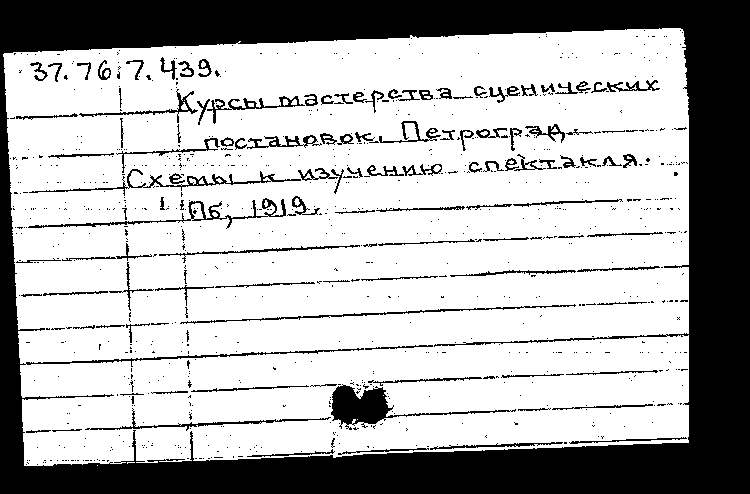 37.76.7.439.
Курсы мастерства сценических
постановок. Петроград.
Схемы к изучению спектакля.
Пб, 1919.